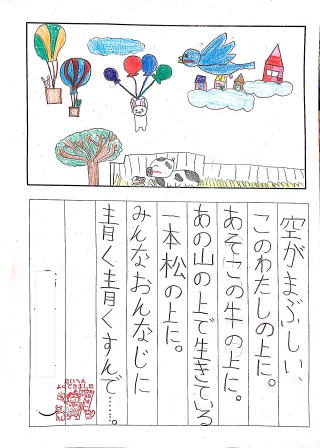 空がまぶしい、
このわたしの上に。
あそこの牛の上に。
あの山の上で生きている
一本松の上に。
みんなおんなじに
青く青くすんで……。
たいへん
よくできました